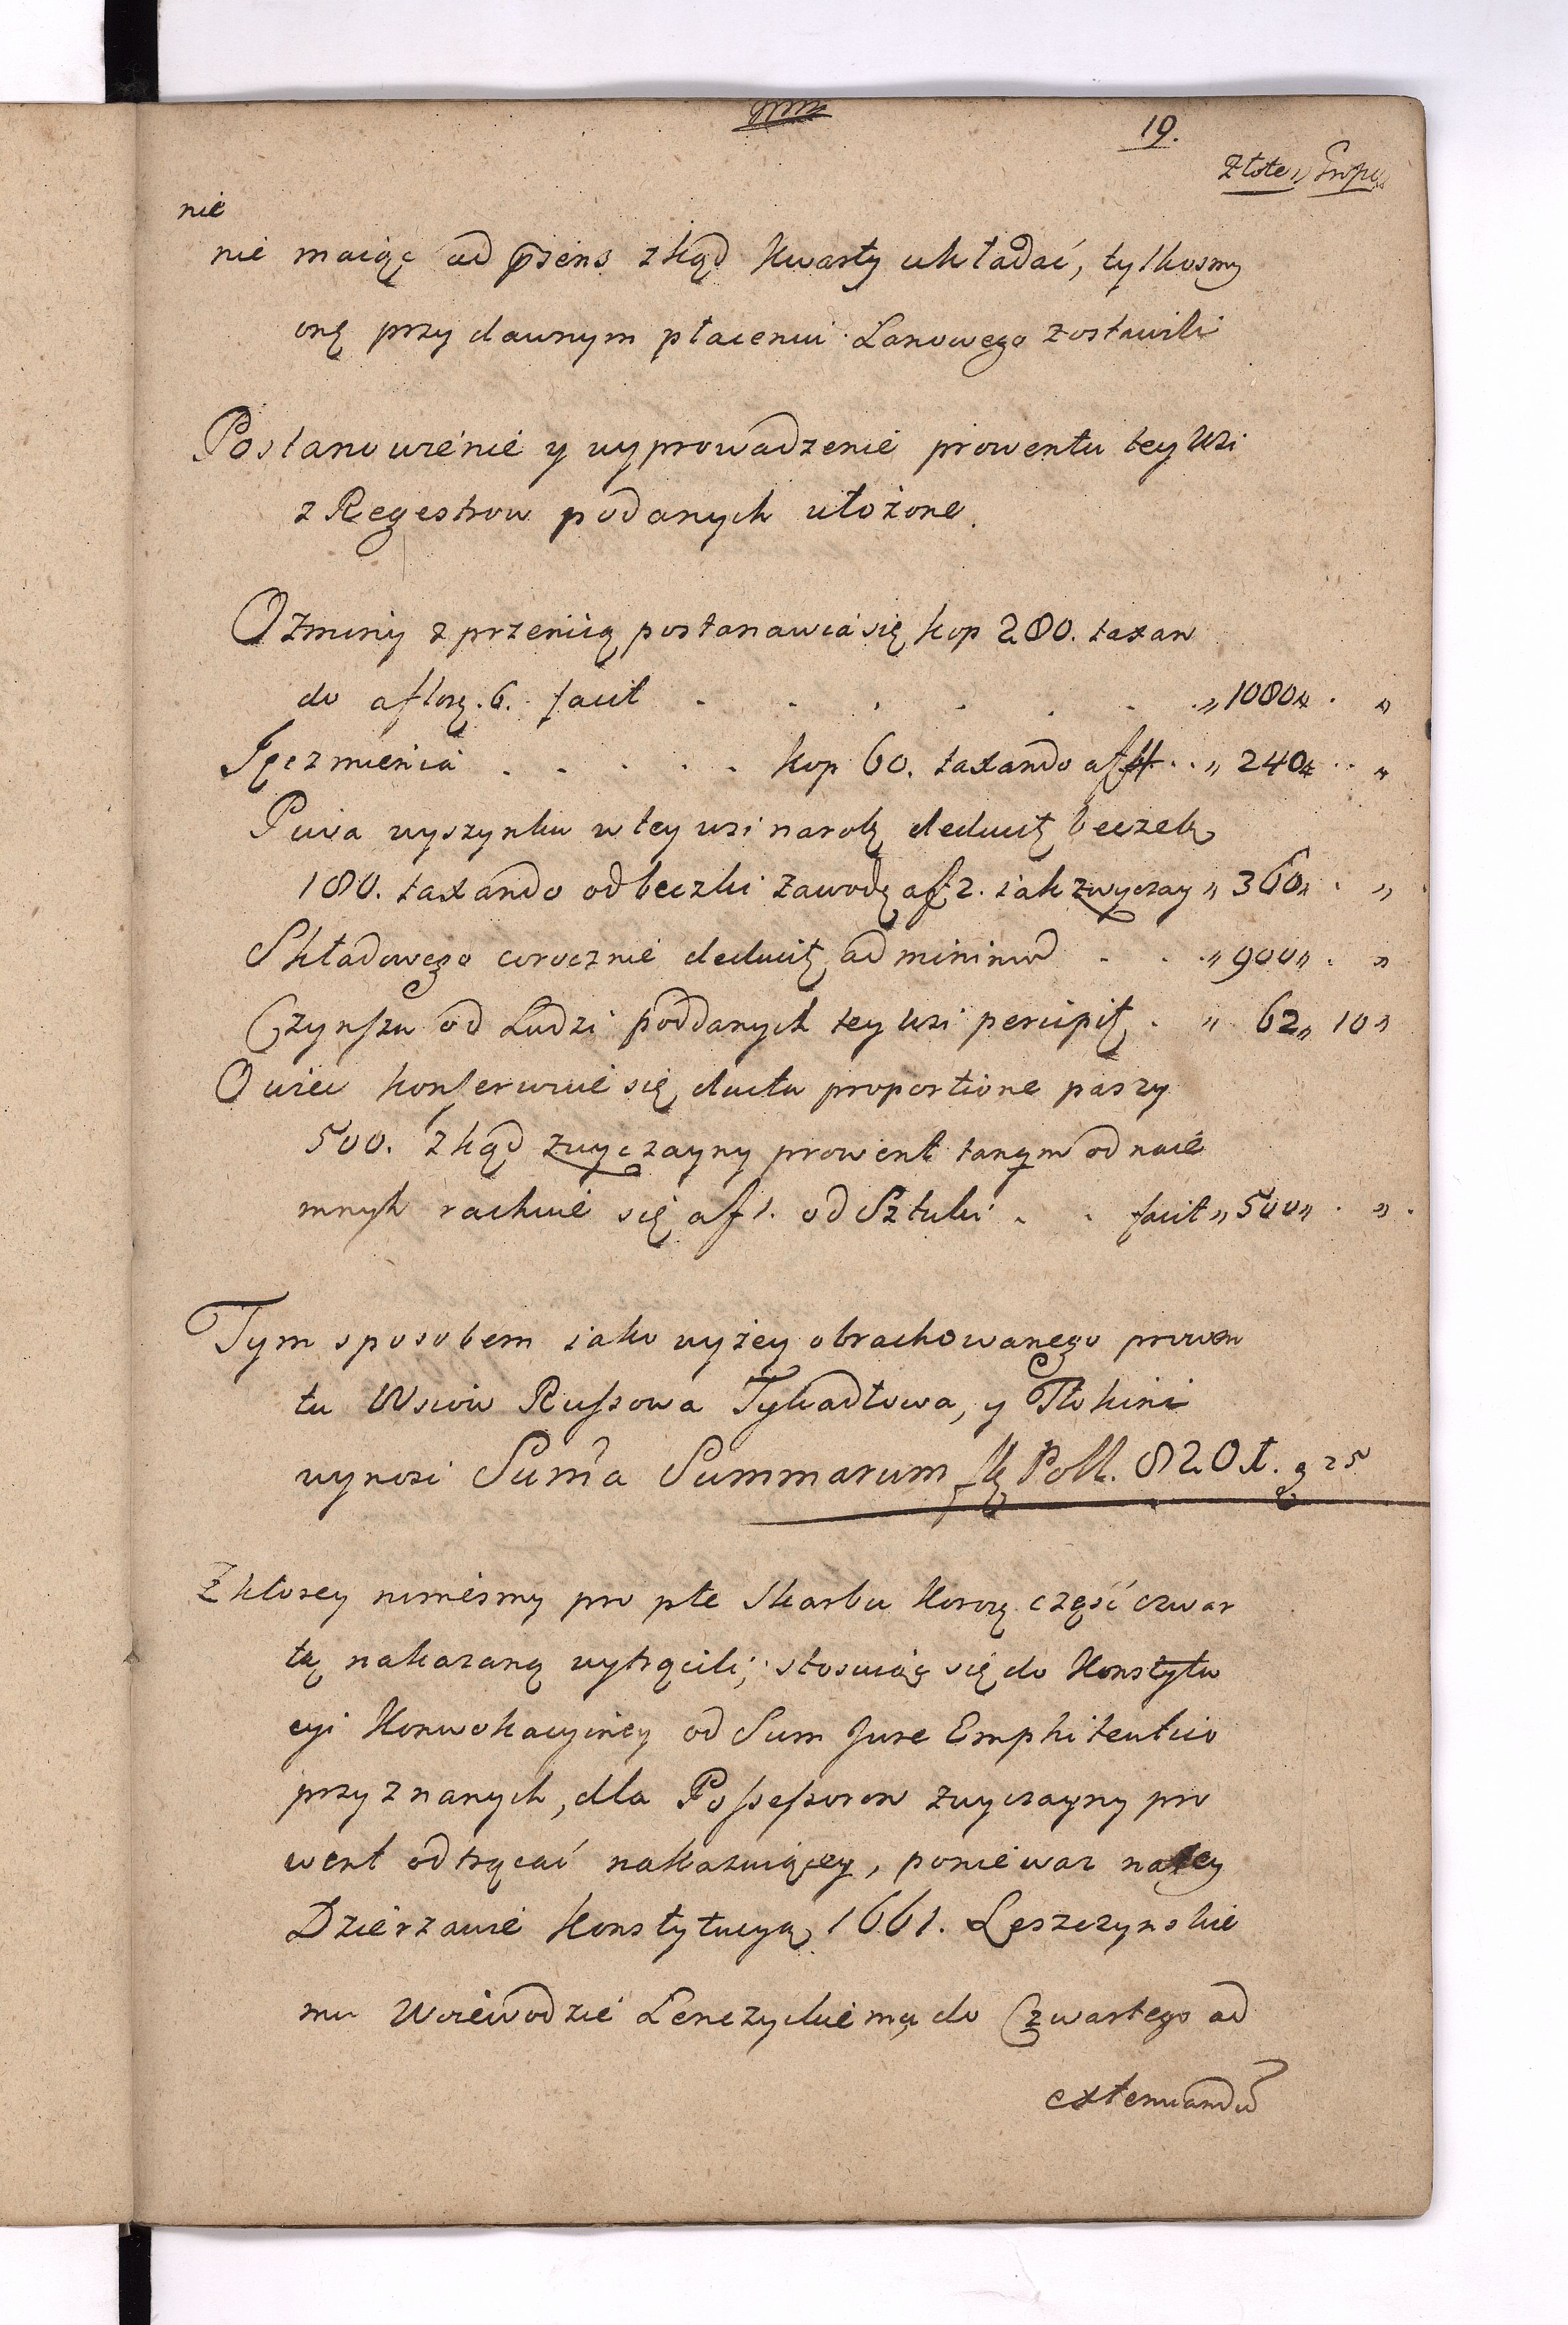 19.
Złote „
nie
nie maiąc ad psens zkąd kwarty układać, tylkosmy
onę przy dawnym płaceniu Lanowego zostawili
Postanowienie y wyprowadzenie prowentu tey wsi
z Regestrow podanych ułożone.
Ozminy z przenicą postanawia się kop 280. taxan
do a flor. 6. facit . . . . . . „ 1080 „ . „
Ięczmienia . . . . . kop 60. taxando a f 4 . . „ 240 „ . . „
Piwa wyszynku w tey wsi na rok deducit beczek
180. taxando od beczki zawodę a f 2. iak zwyczay „ 360 „ . „
Składowego corocznie deducit ad minimu . . „ 900 „ . „
Czynszu od Ludzi poddanych tey wsi percipit . „ 62 „ 10 „
Owiec konserwuie się ductu proportione paszy
500. zkąd zwyczayny prowent tanqm od naie
mnych rachuie się a f 1. od Sztuki . . facit „ 500 „ . „ .
Tym sposobem iako wyżey obrachowanego prowen
tu Wsiow Russowa Tykadłowa, y Tłokini
wynosi Suma Summarum fl Poll. 8201. g 25
Z ktorey sumesmy pro pte Skarbu Koro część czwar
tą nakazaną wytrącili, stosuiąc się do Konstytu
cyi Konwokacyiney od Sum Jure Emphiteutico
przyznanych, dla Possessorow zwyczayny pro
went odtrącać nakazuiącey, poniewaz na tey
Dzierzawie Konstytucyą 1661. Leszczynskie
mu Woiewodzie Lenczyckiemu do Czwartego ad
extenuandu